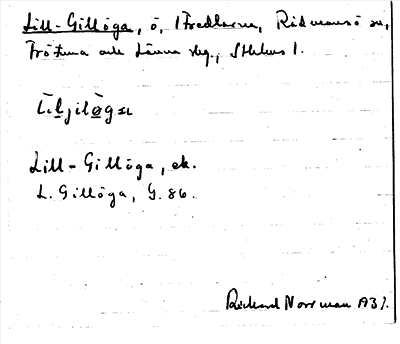 Lill-Gillöga, ö, i Fredlarna, Rådmansö sn,
Frötuna och Länna skg., Sthlms l.
Lill-Gillöga, ek.
L. Gillöga, G. 86.
Rickard Norrman 1931.